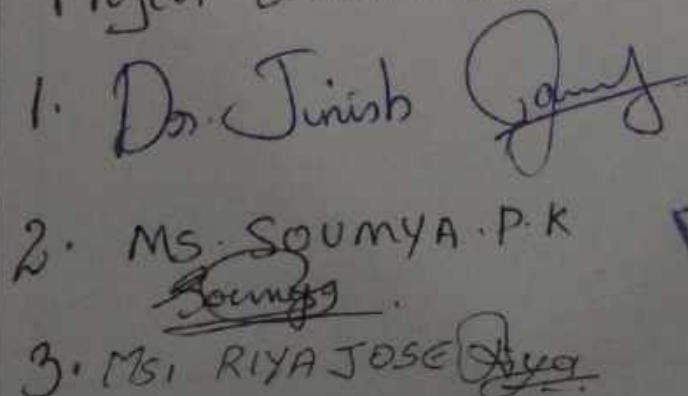 Project
1. Dr. Jinish
2. MS. SOUMYA. P. K
Soumya
3. Ms. RIYA JOSE Riya